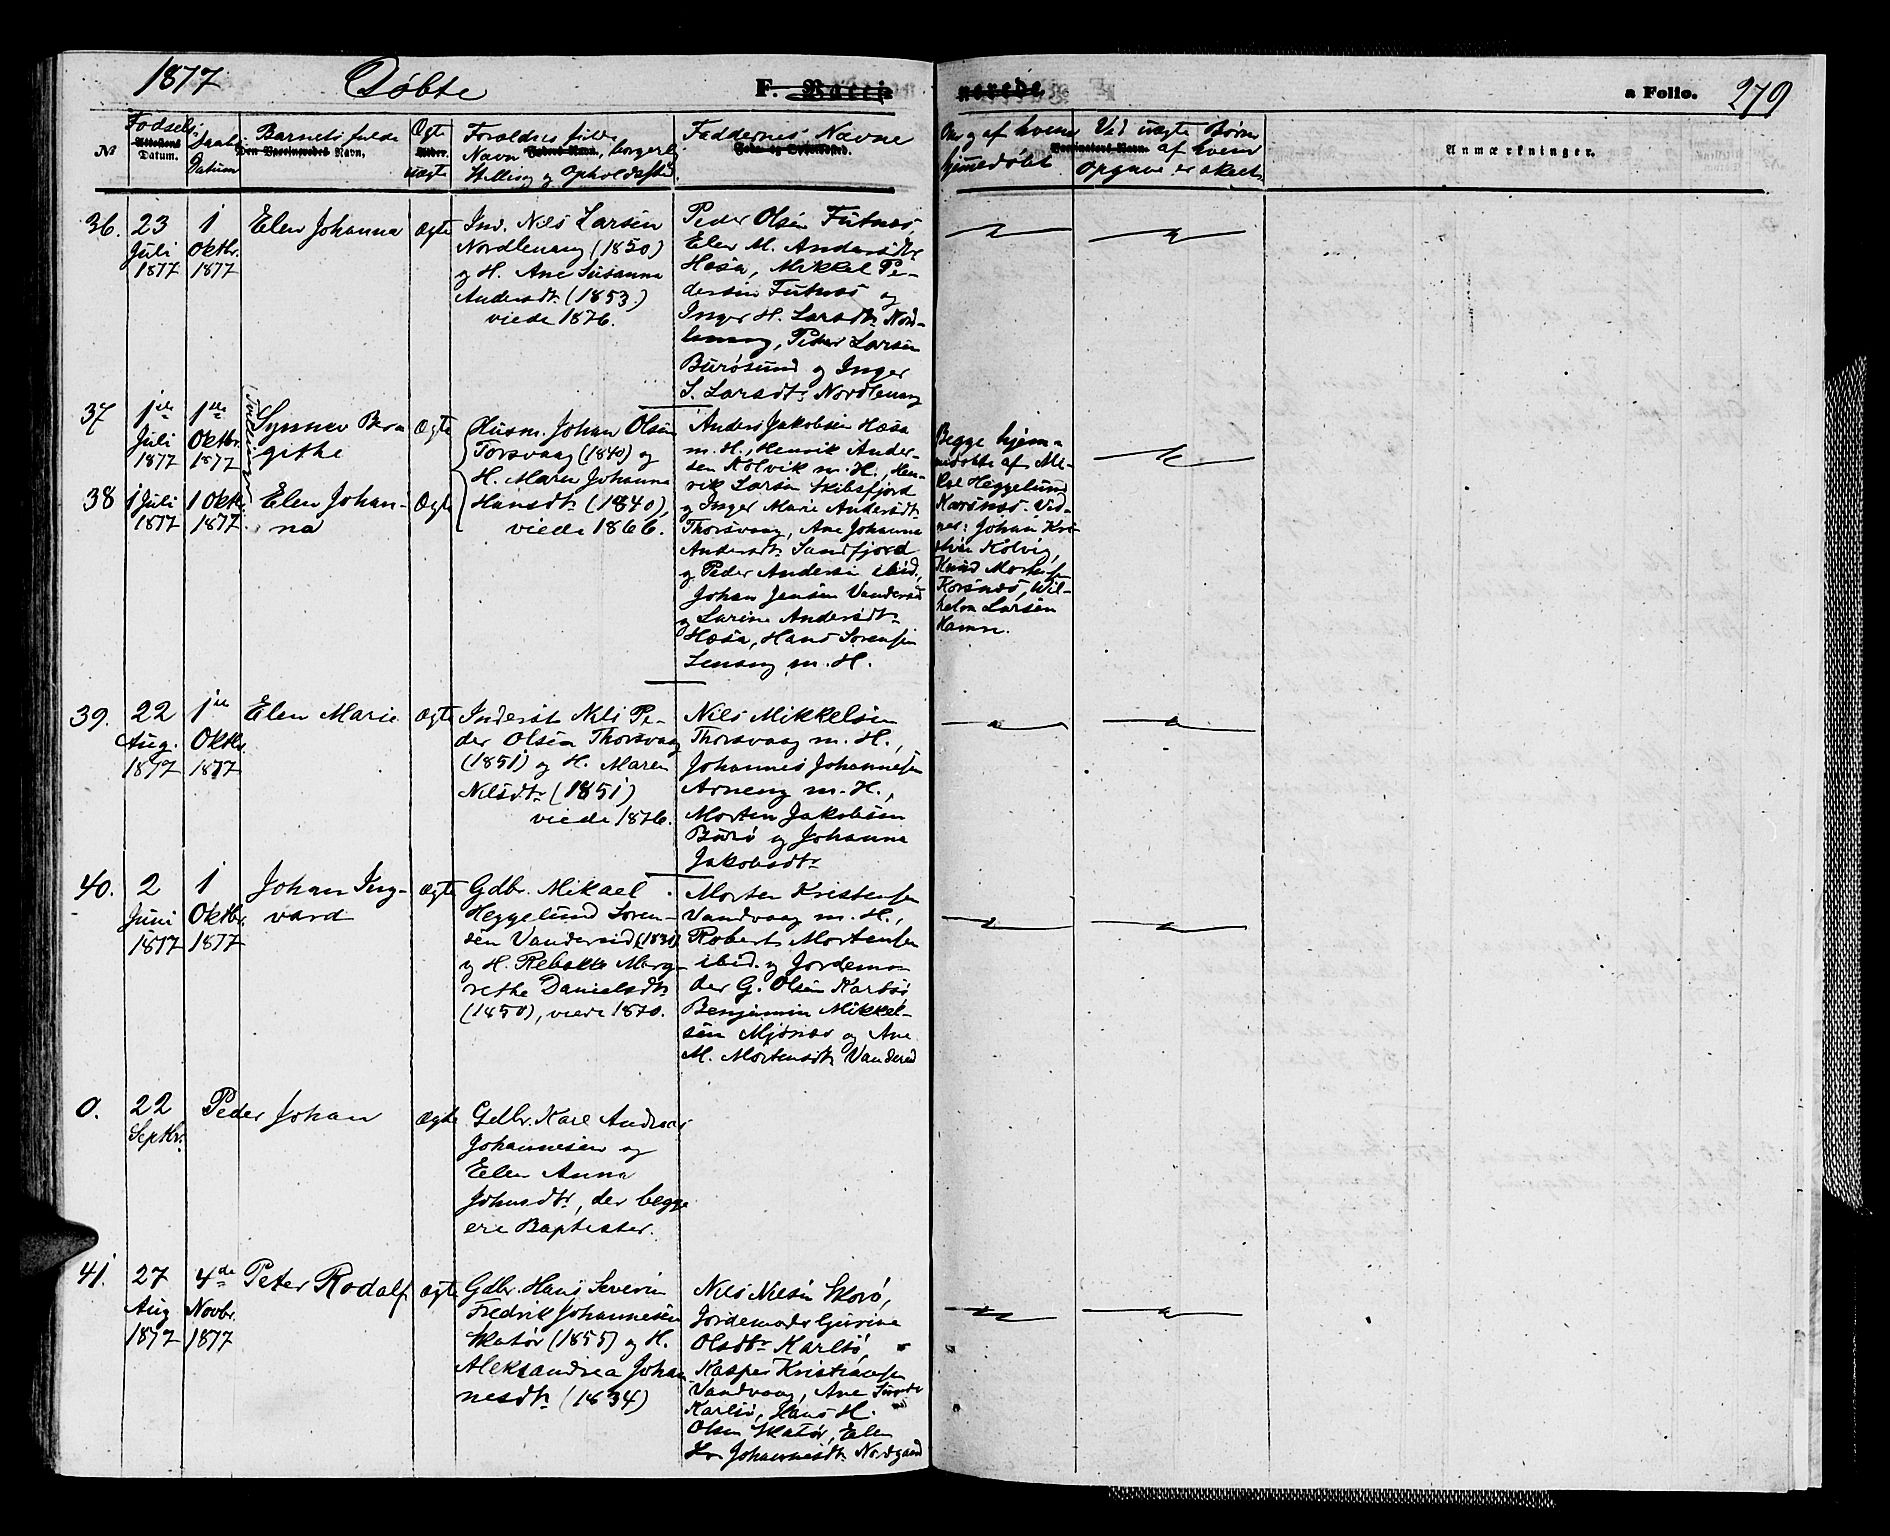 1877 Døbte F. a Folio. 279
No
Fødsels Datum.
Daabs Datum
Barnets fulde Navn,
Ægte uægte
Forældres fulde Navn, borgerlig Stilling og Opholdssted.
Faddernes Navne
Om og af hvem hjemmedøbt
Ved uægte Børn af hvem Opgave er skeet
Anmærkninger.
36.
23 Juli 1877
1 Oktbr. 1877
Elen Johanna
Ægte
Ind. Nils Larsen
Nordlenang (1850)
og H. Ane Susanna
Andersdtr (1853.)
viede 1876.
Peder Olsen Futnæs,
Elen M. Andersdtr
Hæsa, Mikkel Pe-
dersen Futnæs og
Inger H. Larsdtr Nord-
lenang, Peder Larsen
Burøsund og Inger
S. Larsdtr Nordlenang
37
1ste Juli 1877
1ste Oktbr. 1877
Tvillinger
Synnev Ber-
githe
Ægte
Husm. Johan Olsen
Torsvaag (1840) og
H. Maren Johanna
Hansdtr (1840),
viede 1866.
Anders Jakobsen Hæsa
m. H., Henrik Ander-
sen Kolvik m. H., Hen-
rik Larsen Skibsfjord
og Inger Marie Andersdtr
Thorsvaag, Ane Johanna
Andersdtr Sandfjord
og Peder Andersen ibid.,
Johan Jensen Vandersid
og Larine Andersdtr
Hæsa, Hans Sørensen
Lenang m. H.
Begge hjem-
medøbte af Mi-
kal Heggelund
Korsnæs. Vid-
ner: Johan Kri-
stian Kolvig,
Korsnæs, Wil-
helm Larsen
Hamre.
38
1 Juli 1877
1 Oktbr. 1877
Elen Johan-
na
Ægte
39.
22 Aug. 1877
1ste Oktbr 1877
Elen Marie
Ægte
Inderst Nils Pe-
der Olsen Thorsvaag
(1851) og H. Maren
Nilsdtr (1851)
viede 1876.
Nils Mikkelsen
Thorsvaag m. H.,
Johannes Johannesen
Arneng m. H.,
Morten Jakobsen
Burø og Johanna
Jakobsdtr
40.
2 Juni 1877
1 Oktbr. 1877
Johan Ing-
vard
Ægte
Gdbr. Mikael
Heggelund Søren-
sen Vandersid (1830)
og H. Rebekka Marg-
rethe Danielsdtr
(1850), viede 1870.
Morten Kristensen
Vandvaag m. H.,
Robert Mortensen
ibid. og Jordemo-
der G. Olsen Karlsø
Benjamin Mikkel-
sen Mjønes og Ane
M. Mortensdtr Vandersid
0.
22 Septbr.
Peder Johan
Ægte
Gdbr. Karl Andreas
Johannesen og
Elen Anna
Johnsdtr, der begge
ere Baptister.
41.
27 Aug 1877
4de Novbr. 1877
Peter Rodolf
Ægte
Gdbr. Hans Severin
Fredrik Johannesen
Skatør (1855) og H.
Aleksandrea Johan-
nesdtr (1834)
Nils Nilsen Skorø,
Jordemoder Gurine
Olsdtr Karlsø,
Kasper Kristiansen
Vandvaag, Ane
Karlsø, Hans H.
Olsen Skatør, Elen
Johannesdtr Nordgaard